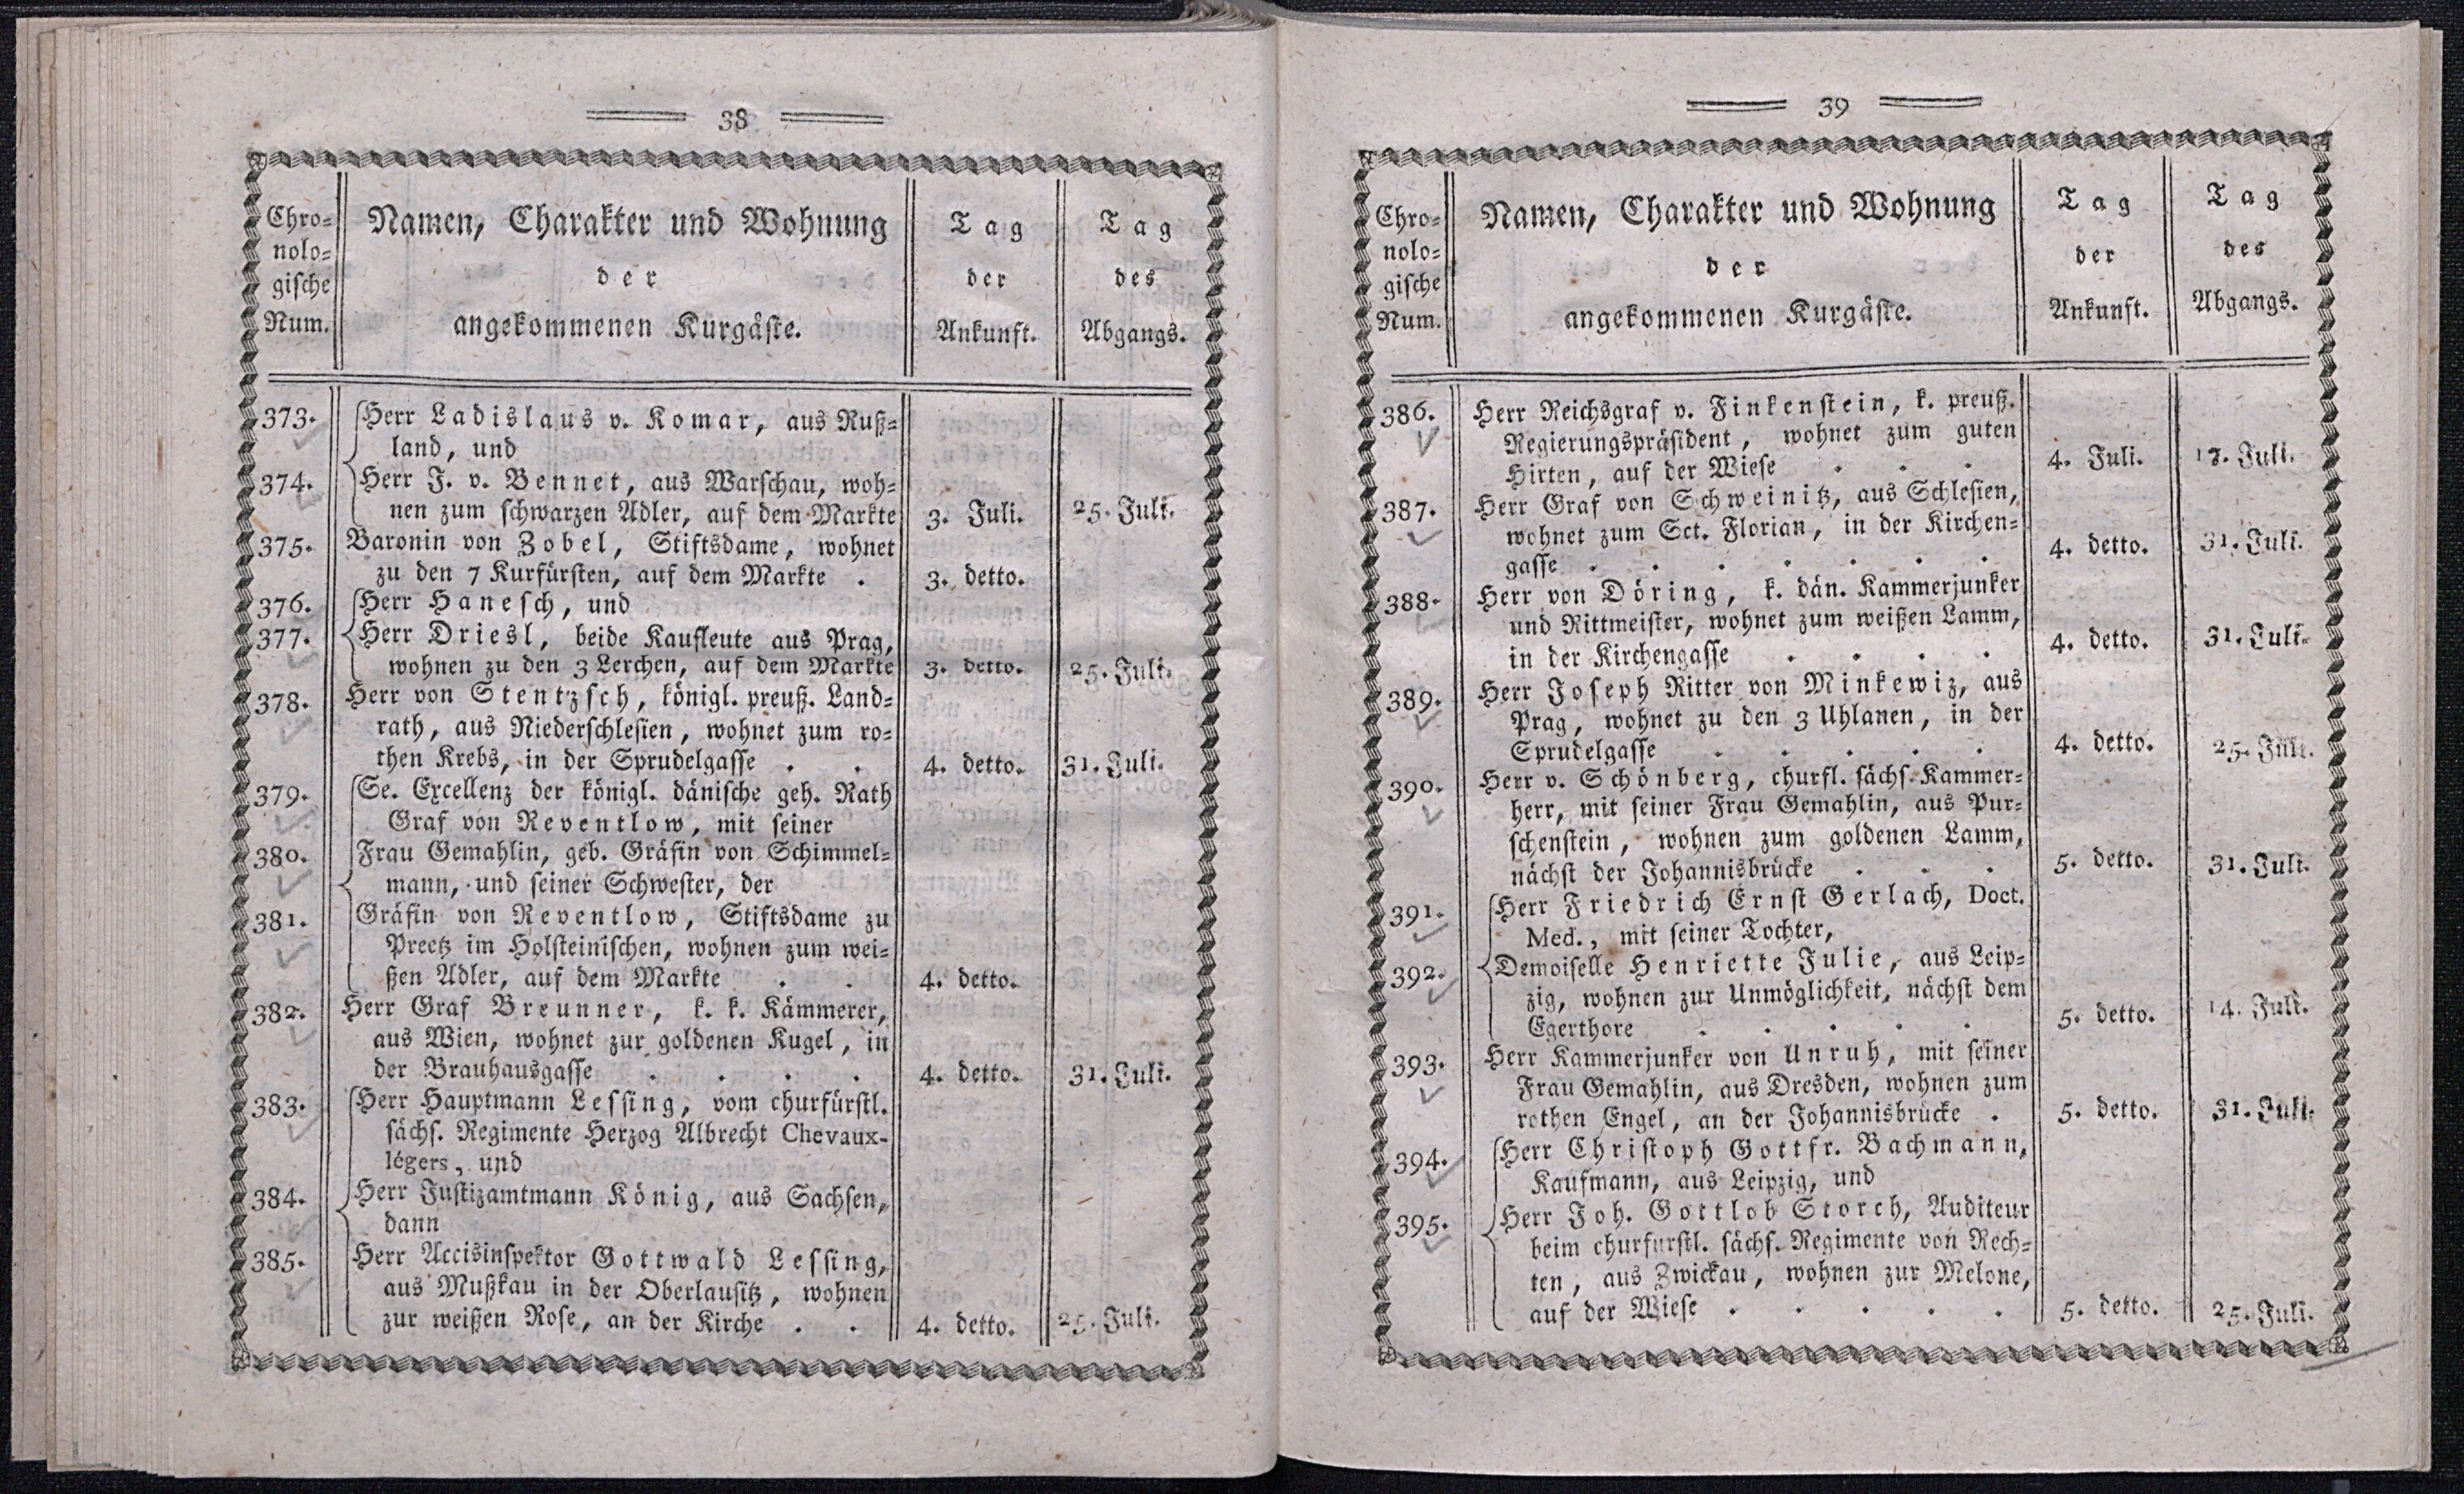 38
Chro-
nolo-
gische
Num.
Namen, Charakter und Wohnung
der
angekommenen Kurgäste.
Tag
der
Ankunft.
Tag
des
Abgangs.
373. Herr Ladislaus v. Komar, aus Ruß-
land, und
374. Herr J. v. Bennet, aus Warschau, woh-
nen zum schwarzen Adler, auf dem Markte 3. Juli. 25. Juli.
375. Baronin von Zobel, Stiftsdame, wohnet
zu den 7 Kurfürsten, auf dem Markte . 3. detto.
376. Herr Hanesch, und
377. Herr Driesl, beide Kaufleute aus Prag,
wohnen zu den 3 Lerchen, auf dem Markte 3. detto. 25. Juli.
378. Herr von Stentzsch, königl. preuß. Land-
rath, aus Niederschlesien, wohnet zum ro-
then Krebs, in der Sprudelgasse . . 4. detto. 31. Juli.
379. Se. Excellenz der königl. dänische geh. Rath
Graf von Reventlow, mit seiner
380. Frau Gemahlin, geb. Gräfin von Schimmel-
mann, und seiner Schwester, der
381. Gräfin von Reventlow, Stiftsdame zu
Preetz im Holsteinischen, wohnen zum wei-
ßen Adler, auf dem Markte . . 4. detto.
382. Herr Graf Breunner, k. k. Kämmerer,
aus Wien, wohnet zur goldenen Kugel, in
der Brauhausgasse . . . . 4. detto. 31. Juli.
383. Herr Hauptmann Lessing, vom churfürstl.
sächs. Regimente Herzog Albrecht Chevaux-
légers, und
384. Herr Justizamtmann König, aus Sachsen,
dann
385. Herr Accisinspektor Gottwald Lessing,
aus Mußkau in der Oberlausitz, wohnen
zur weißen Rose, an der Kirche . . 4. detto. 25. Juli.
39
Chro-
nolo-
gische
Num.
Namen, Charakter und Wohnung
der
angekommenen Kurgäste.
Tag
der
Ankunft.
Tag
des
Abgangs.
386. Herr Reichsgraf v. Finkenstein, k. preuß.
Regierungspräsident, wohnet zum guten
Hirten, auf der Wiese . . . 4. Juli. 17. Juli.
387. Herr Graf von Schweinitz, aus Schlesien,
wohnet zum Sct. Florian, in der Kirchen-
gasse . . . . . . . 4. detto. 31. Juli.
388. Herr von Döring, k. dän. Kammerjunker
und Rittmeister, wohnet zum weißen Lamm,
in der Kirchengasse . . . . 4. detto. 31. Juli.
389. Herr Joseph Ritter von Minkewiz, aus
Prag, wohnet zu den 3 Uhlanen, in der
Sprudelgasse . . . . . 4. detto. 25. Juli.
390. Herr v. Schönberg, churfl. sächs. Kammer-
herr, mit seiner Frau Gemahlin, aus Pur-
schenstein, wohnen zum goldenen Lamm,
nächst der Johannisbrücke . . . 5. detto. 31. Juli.
391. Herr Friedrich Ernst Gerlach, Doct.
Med., mit seiner Tochter,
392. Demoiselle Henriette Julie, aus Leip-
zig, wohnen zur Unmöglichkeit, nächst dem
Egerthore . . . . . 5. detto. 14. Juli.
393. Herr Kammerjunker von Unruh, mit seiner
Frau Gemahlin, aus Dresden, wohnen zum
rothen Engel, an der Johannisbrücke . 5. detto. 31. Juli.
394. Herr Christoph Gottfr. Bachmann,
Kaufmann, aus Leipzig, und
395. Herr Joh. Gottlob Storch, Auditeur
beim churfürstl. sächs. Regimente von Rech-
ten, aus Zwickau, wohnen zur Melone,
auf der Wiese . . . . . 5. detto. 25. Juli.